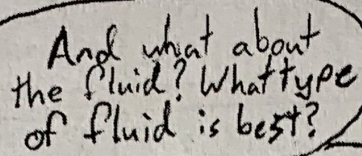 And what about
the fluid? What type
of fluid is best?